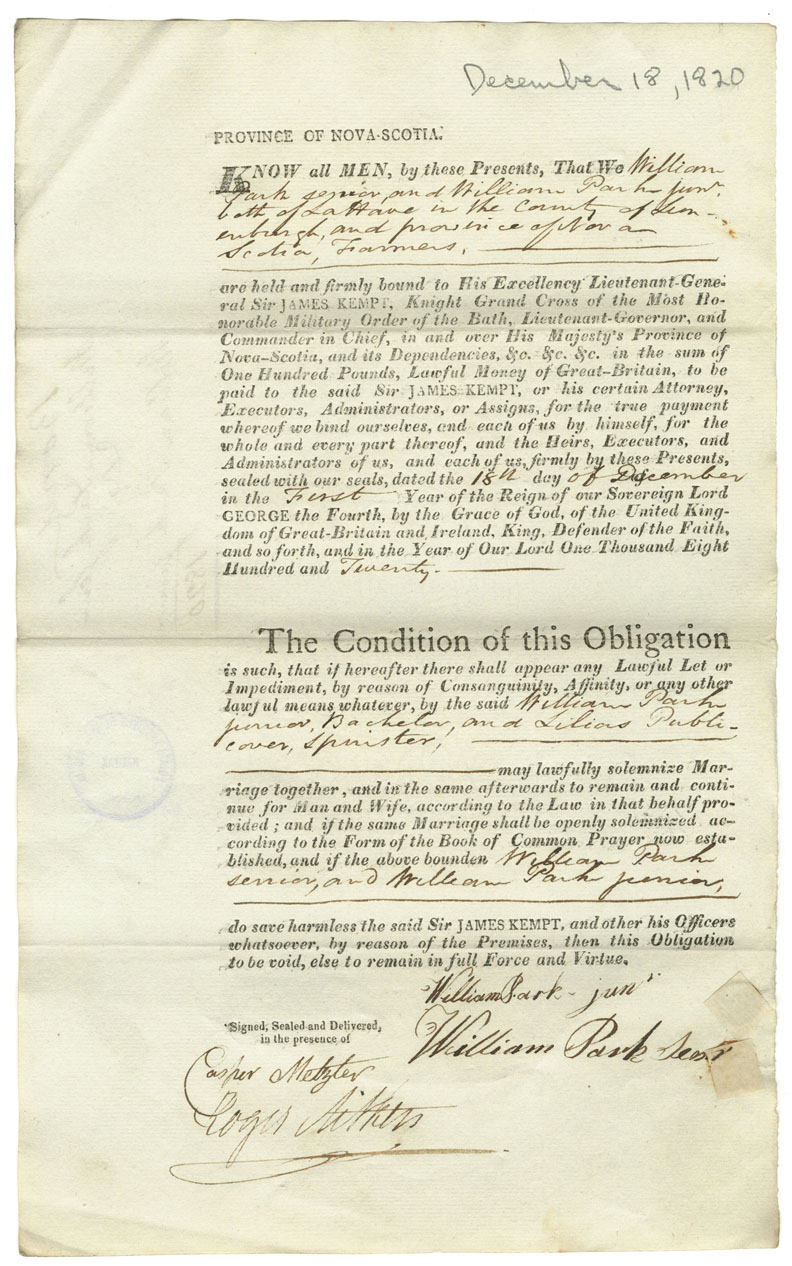 December 18, 1820
PROVINCE OF NOVA-SCOTIA.
KNOW all MEN, by these Presents, That We William
Park senior, and William Park junr.
both of LaHave in the County of Lun-
enburgh, and province of Nova
Scotia, Farmers,
are held and firmly bound to His Excellency Lieutenant-Gene-
ral Sir JAMES KEMPT, Knight Grand Cross of the Most Ho-
norable Military Order of the Bath, Lieutenant-Governor, and
Commander in Chief, in and over His Majesty's Province of
Nova-Scotia, and its Dependencies, &c. &c. &c. in the sum of
One Hundred Pounds, Lawful Money of Great-Britain, to be
paid to the said Sir JAMES KEMPT, or his certain Attorney,
Executors, Administrators, or Assigns, for the true payment
whereof we bind ourselves, and each of us by himself, for the
whole and every part thereof, and the Heirs, Executors, and
Administrators of us, and each of us, firmly by these Presents,
sealed with our seals, dated the 18th day of December
in the First Year of the Reign of our Sovereign Lord
GEORGE the Fourth, by the Grace of God, of the United King-
dom of Great-Britain and Ireland, King, Defender of the Faith,
and so forth, and in the Year of Our Lord One Thousand Eight
Hundred and Twenty.
The Condition of this Obligation
is such, that if hereafter there shall appear any Lawful Let or
Impediment, by reason of Consanguinity, Affinity, or any other
lawful means whatever, by the said William Park
junior, Bachelor, and Lilias Publi-
cover, Spinster,
may lawfully solemnize Mar-
riage together, and in the same afterwards to remain and conti-
nue for Man and Wife, according to the Law in that behalf pro-
vided; and if the same Marriage shall be openly solemnized ac-
cording to the Form of the Book of Common Prayer now esta-
blished, and if the above bounden William Park
senior, and William Park junior,
do save harmless the said Sir JAMES KEMPT, and other his Officers
whatsoever, by reason of the Premises, then this Obligation
to be void, else to remain in full Force and Virtue.
William Park - junr
William Park Senr
Signed, Sealed and Delivered,
in the presence of
Casper Metzler
Roger Aitken